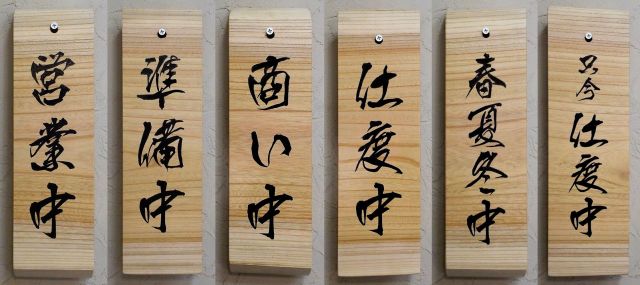 営業中
準備中
商い中
仕度中
春夏冬中
只今仕度中